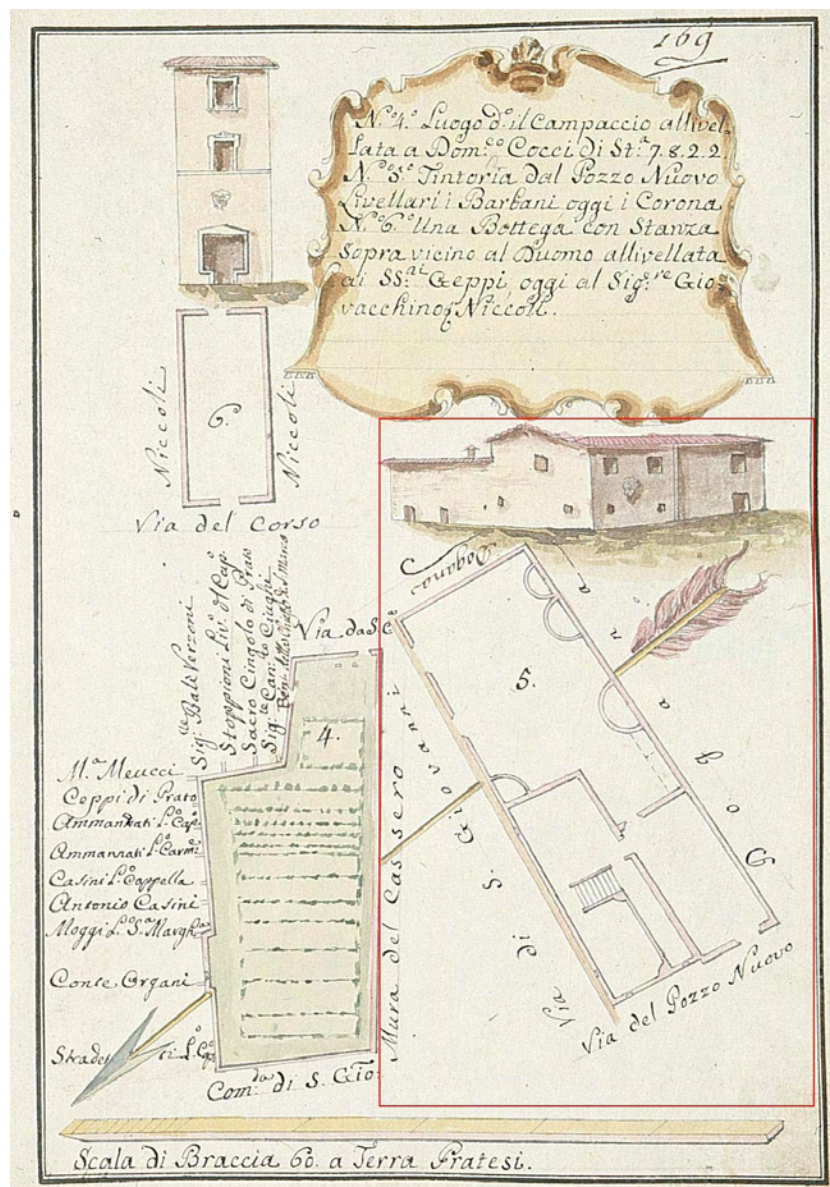 169
N.º 4.º Luogo d.º il Campaccio allivel
lata a Dom.co Cocci di St.a 7.8.2.2.
N.º 5.º Tintoria dal Pozzo Nuovo
Livellari i Barbani oggi i Corona
N.º 6.º Una Bottega con Stanza
Sopra vicino al Duomo allivellata
ai SS.ri Geppi, oggi al Sig.re Gio
vacchino Niccoli.
6.
Niccoli
Niccoli
Via del Corso
Sig.le Bali Verzoni
Stoppioni Liv. d'l Cap.º
Sacro Cingolo di Prato
Sig.le Can.co Ciughi
Via da S. C.e
4.
M.a Meucci
Ceppi di Prato
Ammannati L.º Cap.
Ammannati L.º Carm.
Casini L.º Cappella
Antonio Casini
Moggi L.º S.a Margh.a
Conte Organi
Com.da di S. Gio:
Dogana
5.
Dogana
Mura del Cassero
Via di S. Giovanni
Via del Pozzo Nuovo
Scala di Braccia 60. a Terra Pratesi.